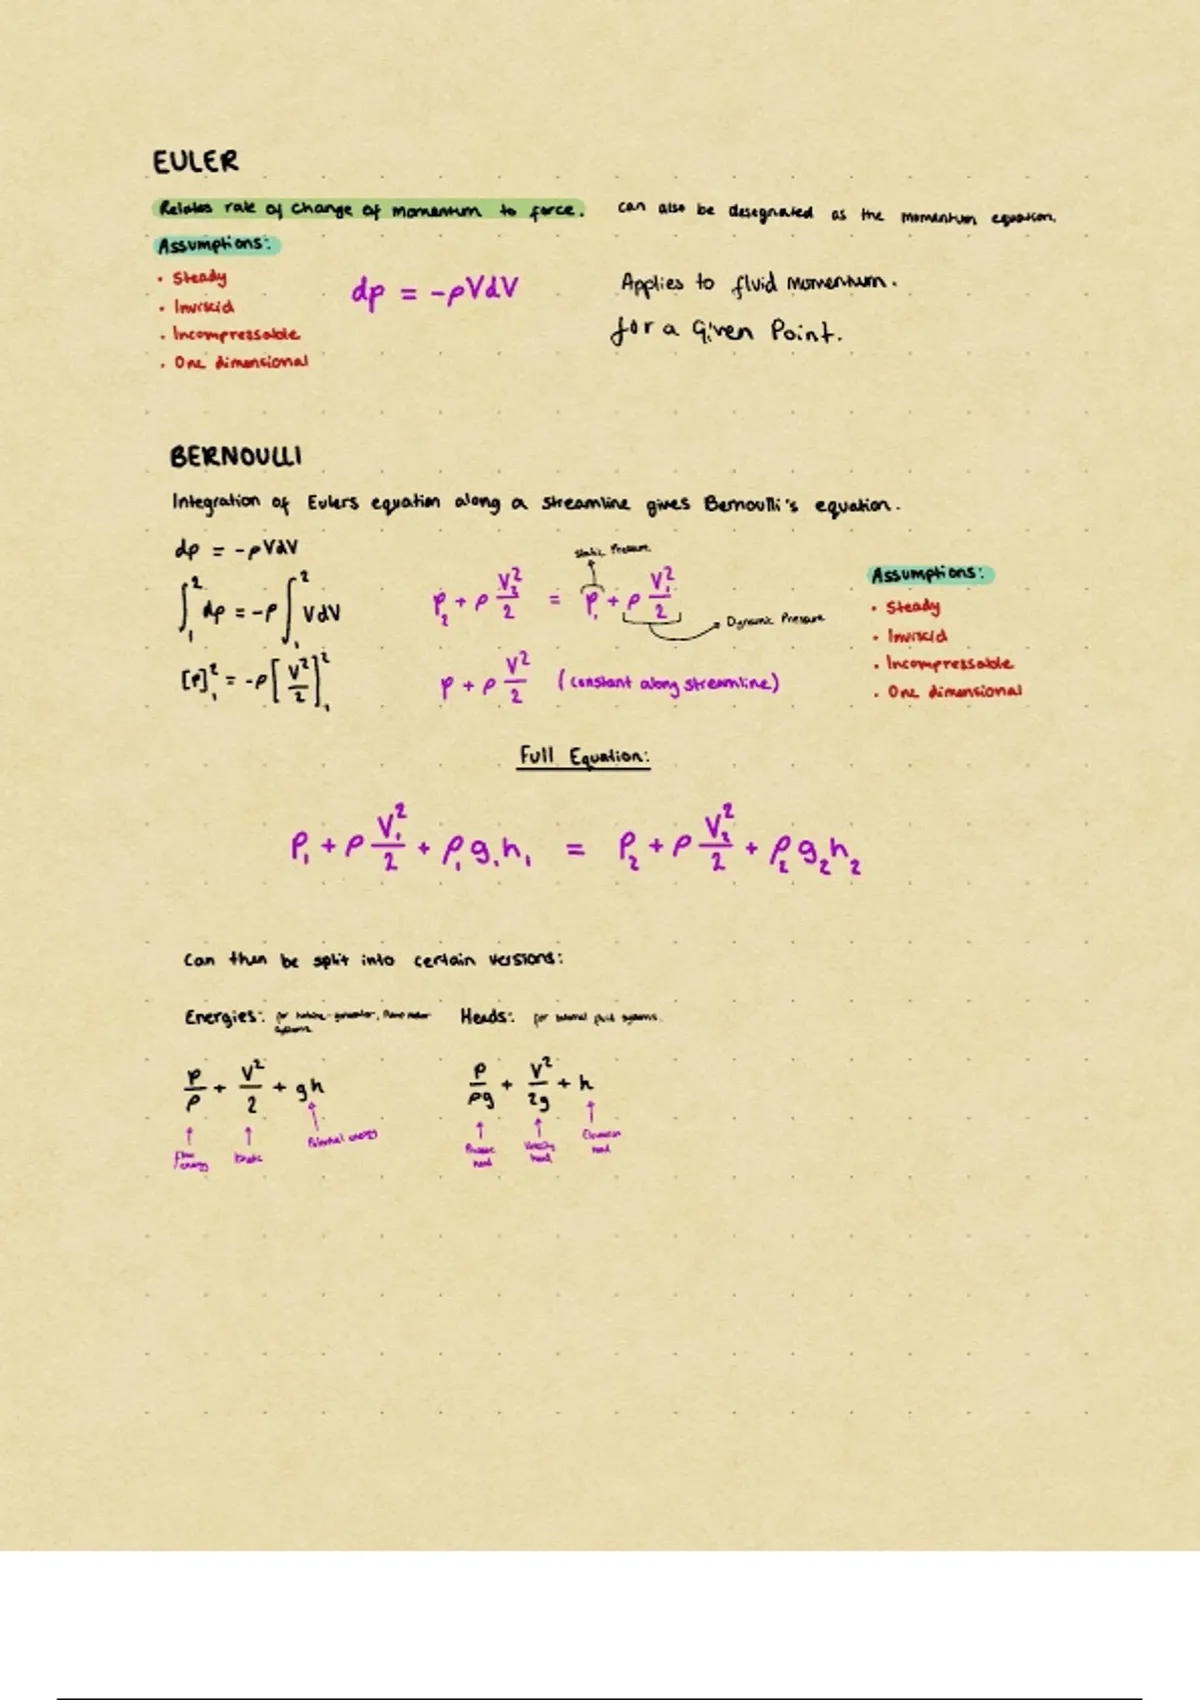 EULER
Relates rate of change of momentum to force. can also be designated as the momentum equation.
Assumptions:
• Steady
• Inviscid
• Incompressable
• One dimensional
dp = -ρVdV
Applies to fluid momentum.
for a Given Point.
BERNOULLI
Integration of Eulers equation along a streamline gives Bernoulli's equation.
dp = -ρVdV
∫₁² dp = -ρ ∫₁² VdV
[P]₁² = -ρ[V²/2]₁²
Static Pressure
P₂ + ρ V₂²/2 = P₁ + ρ V₁²/2
Dynamic Pressure
P + ρ V²/2 (constant along streamline)
Assumptions:
• Steady
• Inviscid
• Incompressable
• One dimensional
Full Equation:
P₁ + ρ V₁²/2 + ρ₁g₁h₁ = P₂ + ρ V₂²/2 + ρ₂g₂h₂
Can then be split into certain versions:
Energies: for turbine-generator, systems
P/ρ + V²/2 + gh
Flow energy
Kinetic
Potential energy
Heads: for fluid systems.
P/ρg + V²/2g + h
Pressure head
Velocity head
Elevation head